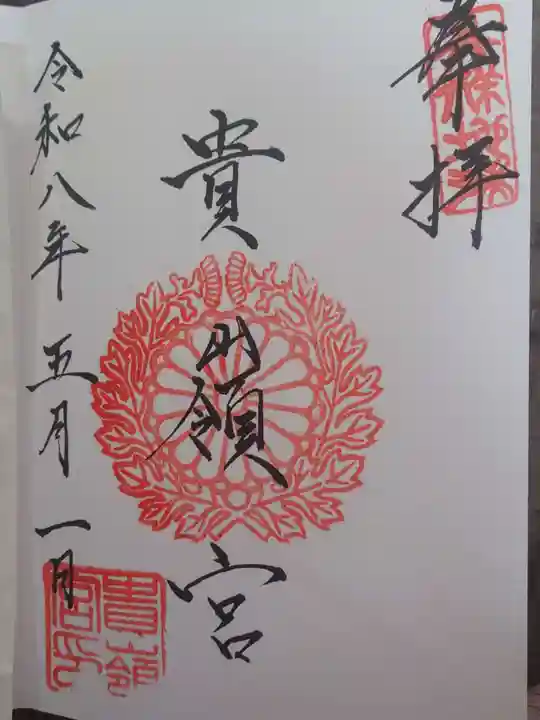 奉拝
貴嶺宮
令和八年五月一日
貴嶺宮印